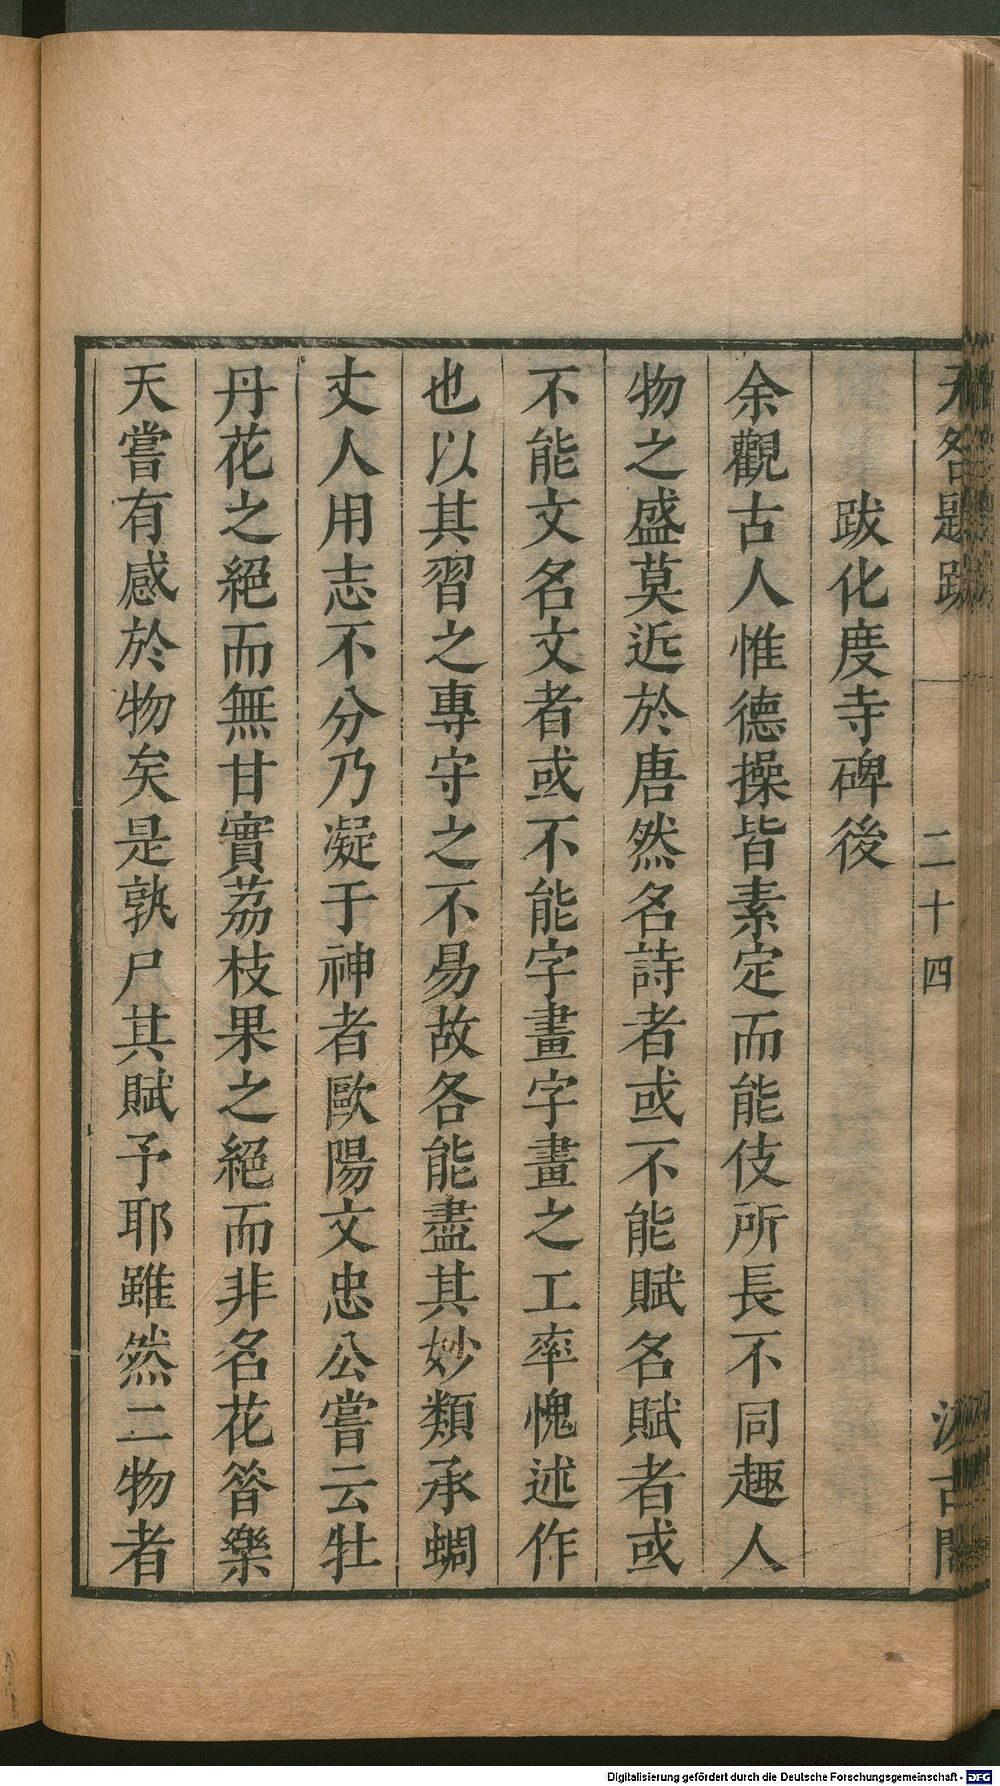 二十四
跋化度寺碑後
余觀古人惟德操皆素定而能伎所長不同趣人
物之盛莫近於唐然名詩者或不能賦名賦者或
不能文名文者或不能字畫字畫之工率愧述作
也以其習之專守之不易故各能盡其妙類承蜩
丈人用志不分乃凝于神者歐陽文忠公嘗云牡
丹花之絕而無甘實荔枝果之絕而非名花答樂
天嘗有感於物矣是孰尸其賦予耶雖然二物者
Digitalisierung gefördert durch die Deutsche Forschungsgemeinschaft - DFG